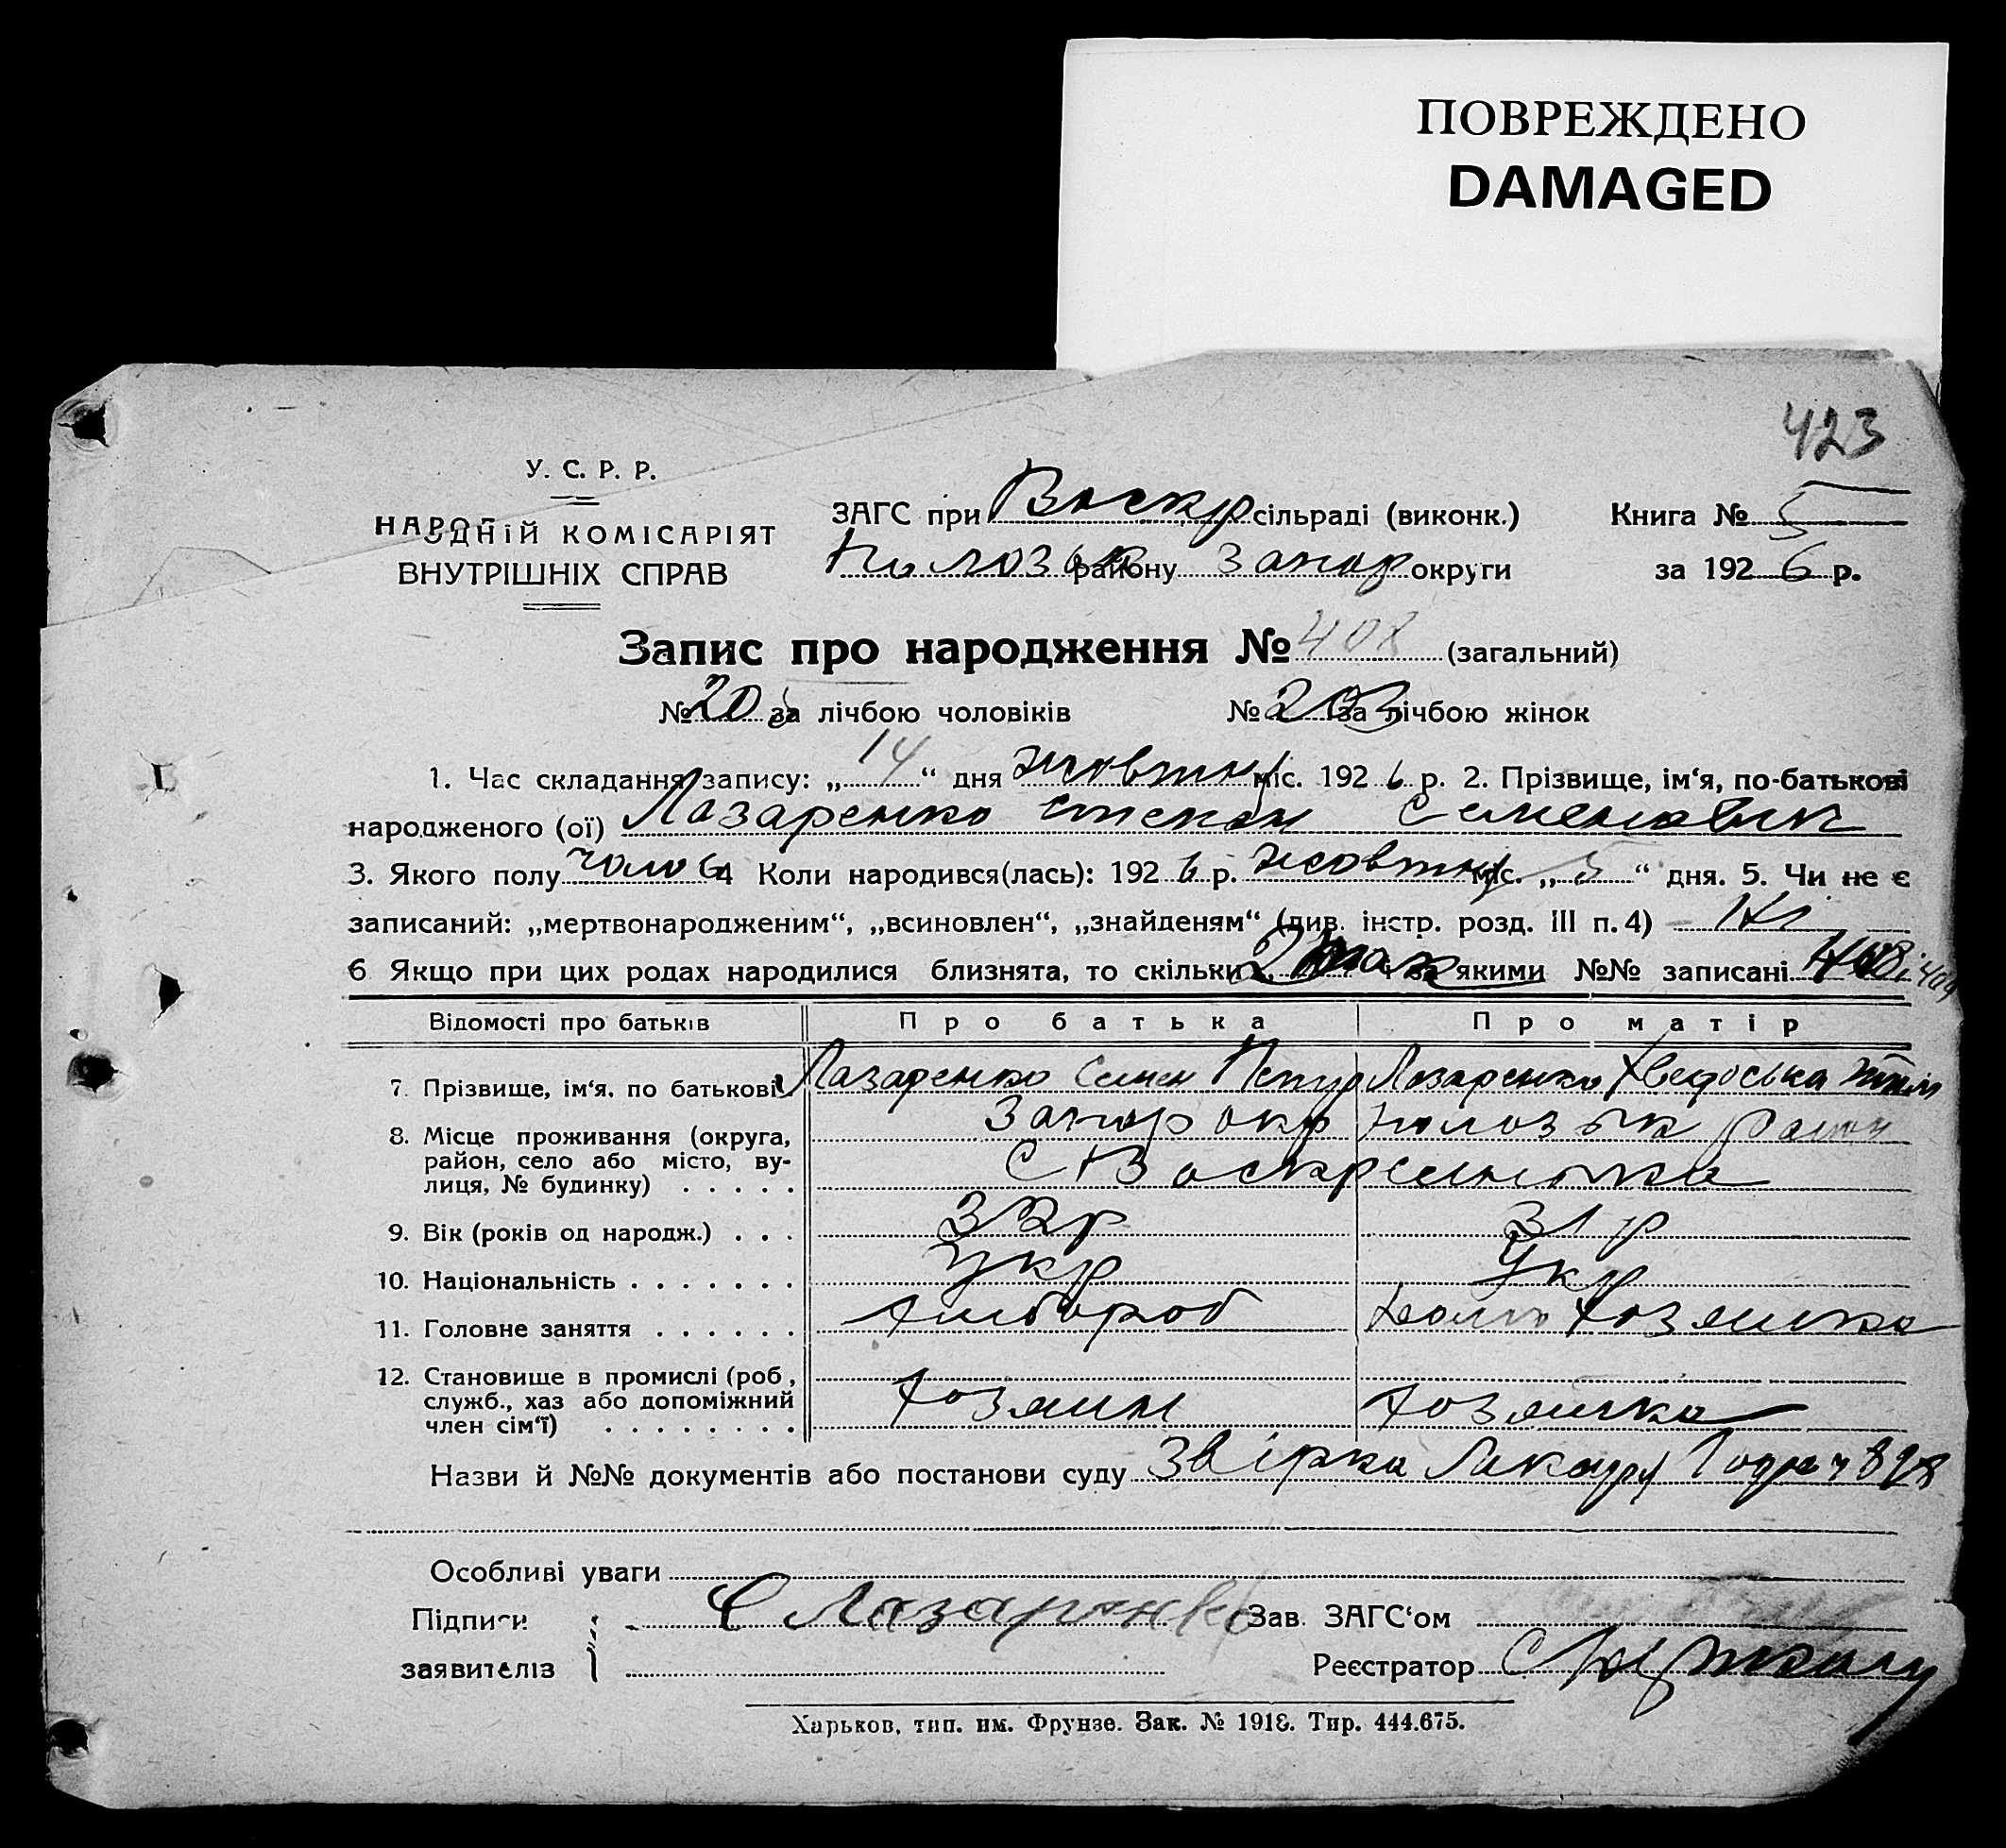 ПОВРЕЖДЕНО
DAMAGED
423
У. С. Р. Р.
НАРОДНІЙ КОМІСАРІЯТ
ВНУТРІШНІХ СПРАВ
ЗАГС при Воскр сільраді (виконк.)
району Запор округи
Книга № 5
за 1926 р.
Запис про народження № 408 (загальний)
№ 205 за лічбою чоловіків № 203 за лічбою жінок
1. Час складання запису: „14“ дня жовтня міс. 1926 р. 2. Прізвище, ім‘я, по-батькові
народженого (ої) Лазаренко степан Семенович
3. Якого полу чолов 4 Коли народився(лась): 1926 р. жовтня міс. „5“ дня. 5. Чи не є
записаний: „мертвонародженим“, „всиновлен“, „знайденям“ (див. інстр. розд. III п. 4) Ні
6 Якщо при цих родах народилися близнята, то скільки 2 за якими №№ записані 408 і 409
Відомості про батьків Про батька Про матір
7. Прізвище, ім‘я, по батькові Лазаренко Семен Петр Лазаренко Хведоська
8. Місце проживання (округа, Запор окр район
район, село або місто, ву-
лиця, № будинку) . . . . . С Воскрисинка
9. Вік (років од народж.) . . . 32р 31 р
10. Національність . . . . . . . Укр Укр
11. Головне заняття . . . . . . хлібороб хозяика
12. Становище в промислі (роб,
служб., хаз або допоміжний хозяин хозяика
член сім‘ї) . . . . . . . .
Назви й №№ документів або постанови суду
Особливі уваги
Підписи С Лазаренко Зав. ЗАГС‘ом
заявителів Реєстратор
Харьков, тип. им. Фрунзе. Зак. № 1918. Тир. 444.675.